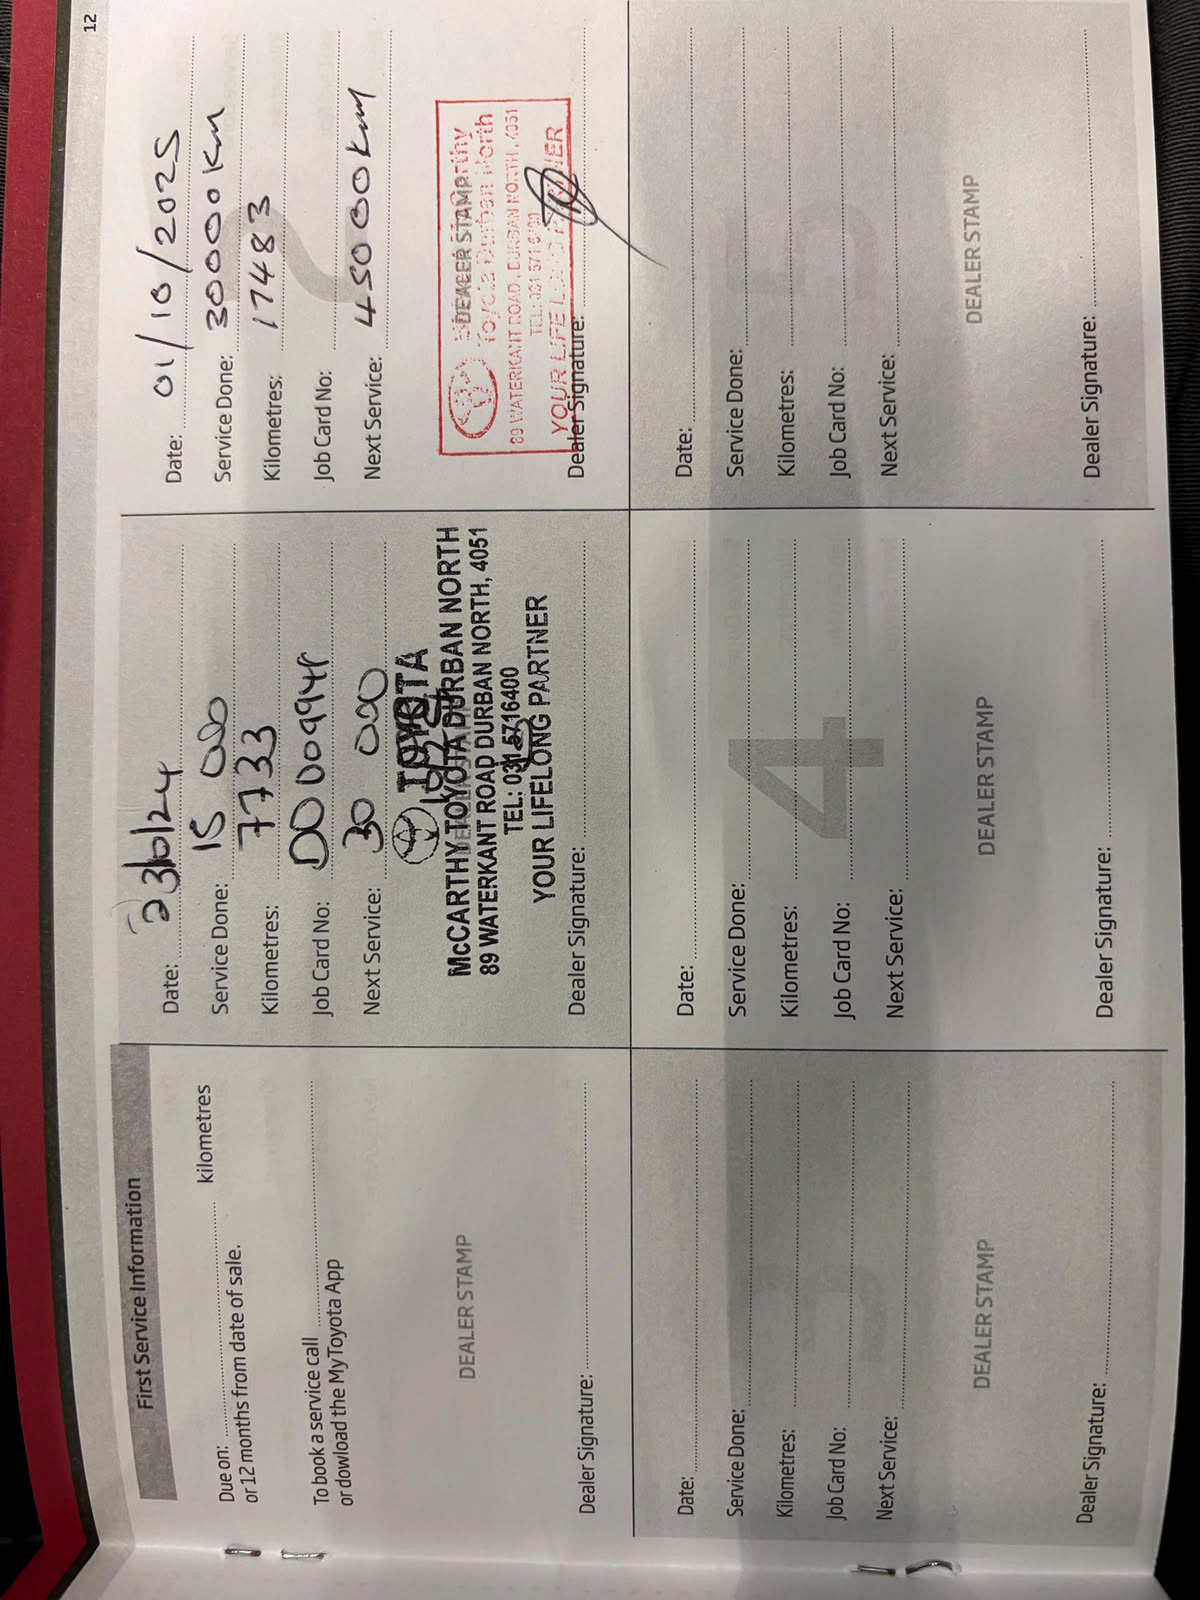 12
First Service Information
Due on: kilometres
or 12 months from date of sale.
To book a service call
or dowload the MyToyota App
DEALER STAMP
Dealer Signature:
Date:
Service Done: 15 000
Kilometres: 7733
Job Card No:
Next Service: 30 000
TOYOTA
McCARTHY TOYOTA DURBAN NORTH
89 WATERKANT ROAD DURBAN NORTH, 4051
TEL: 031 5716400
YOUR LIFELONG PARTNER
Dealer Signature:
Date: 01/10/2025
Service Done: 30000km
Kilometres: 17483
Job Card No:
Next Service: 45000km
DEALER STAMP
Toyota Durban North
89 WATERKANT ROAD, DURBAN NORTH, 4051
YOUR LIFE
Dealer Signature:
Date:
Service Done:
Kilometres:
Job Card No:
Next Service:
DEALER STAMP
Dealer Signature:
4
Date:
Service Done:
Kilometres:
Job Card No:
Next Service:
DEALER STAMP
Dealer Signature:
Date:
Service Done:
Kilometres:
Job Card No:
Next Service:
DEALER STAMP
Dealer Signature: